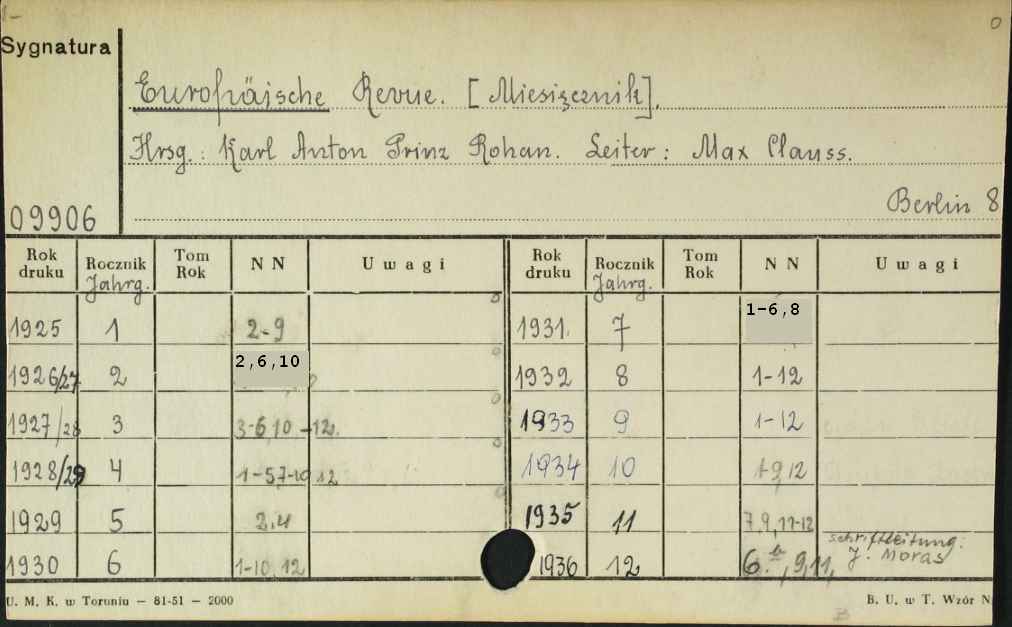 0
Sygnatura
Europäische Revue. [Miesięcznik].
Hrsg.: Karl Anton Prinz Rohan. Leiter: Max Clauss.
Berlin 8
09906
Rok druku Rocznik Jahrg. Tom Rok NN Uwagi Rok druku Rocznik Jahrg. Tom Rok NN Uwagi
1925 1 2-9 1931. 7 1-6,8
1926/27 2 2,6,10 1932 8 1-12
1927/28 3 3-6,10-12. 1933 9 1-12
1928/29 4 1-5,7-10,12 1934 10 1-9,12
1929 5 2,4 1935 11 7,9,11-12
1930 6 1-10,12 1936 12 6.b,9,11, Schriftleitung: J. Moras
U. M. K. w Toruniu — 81-51 — 2000
B. U. w T. Wzór N